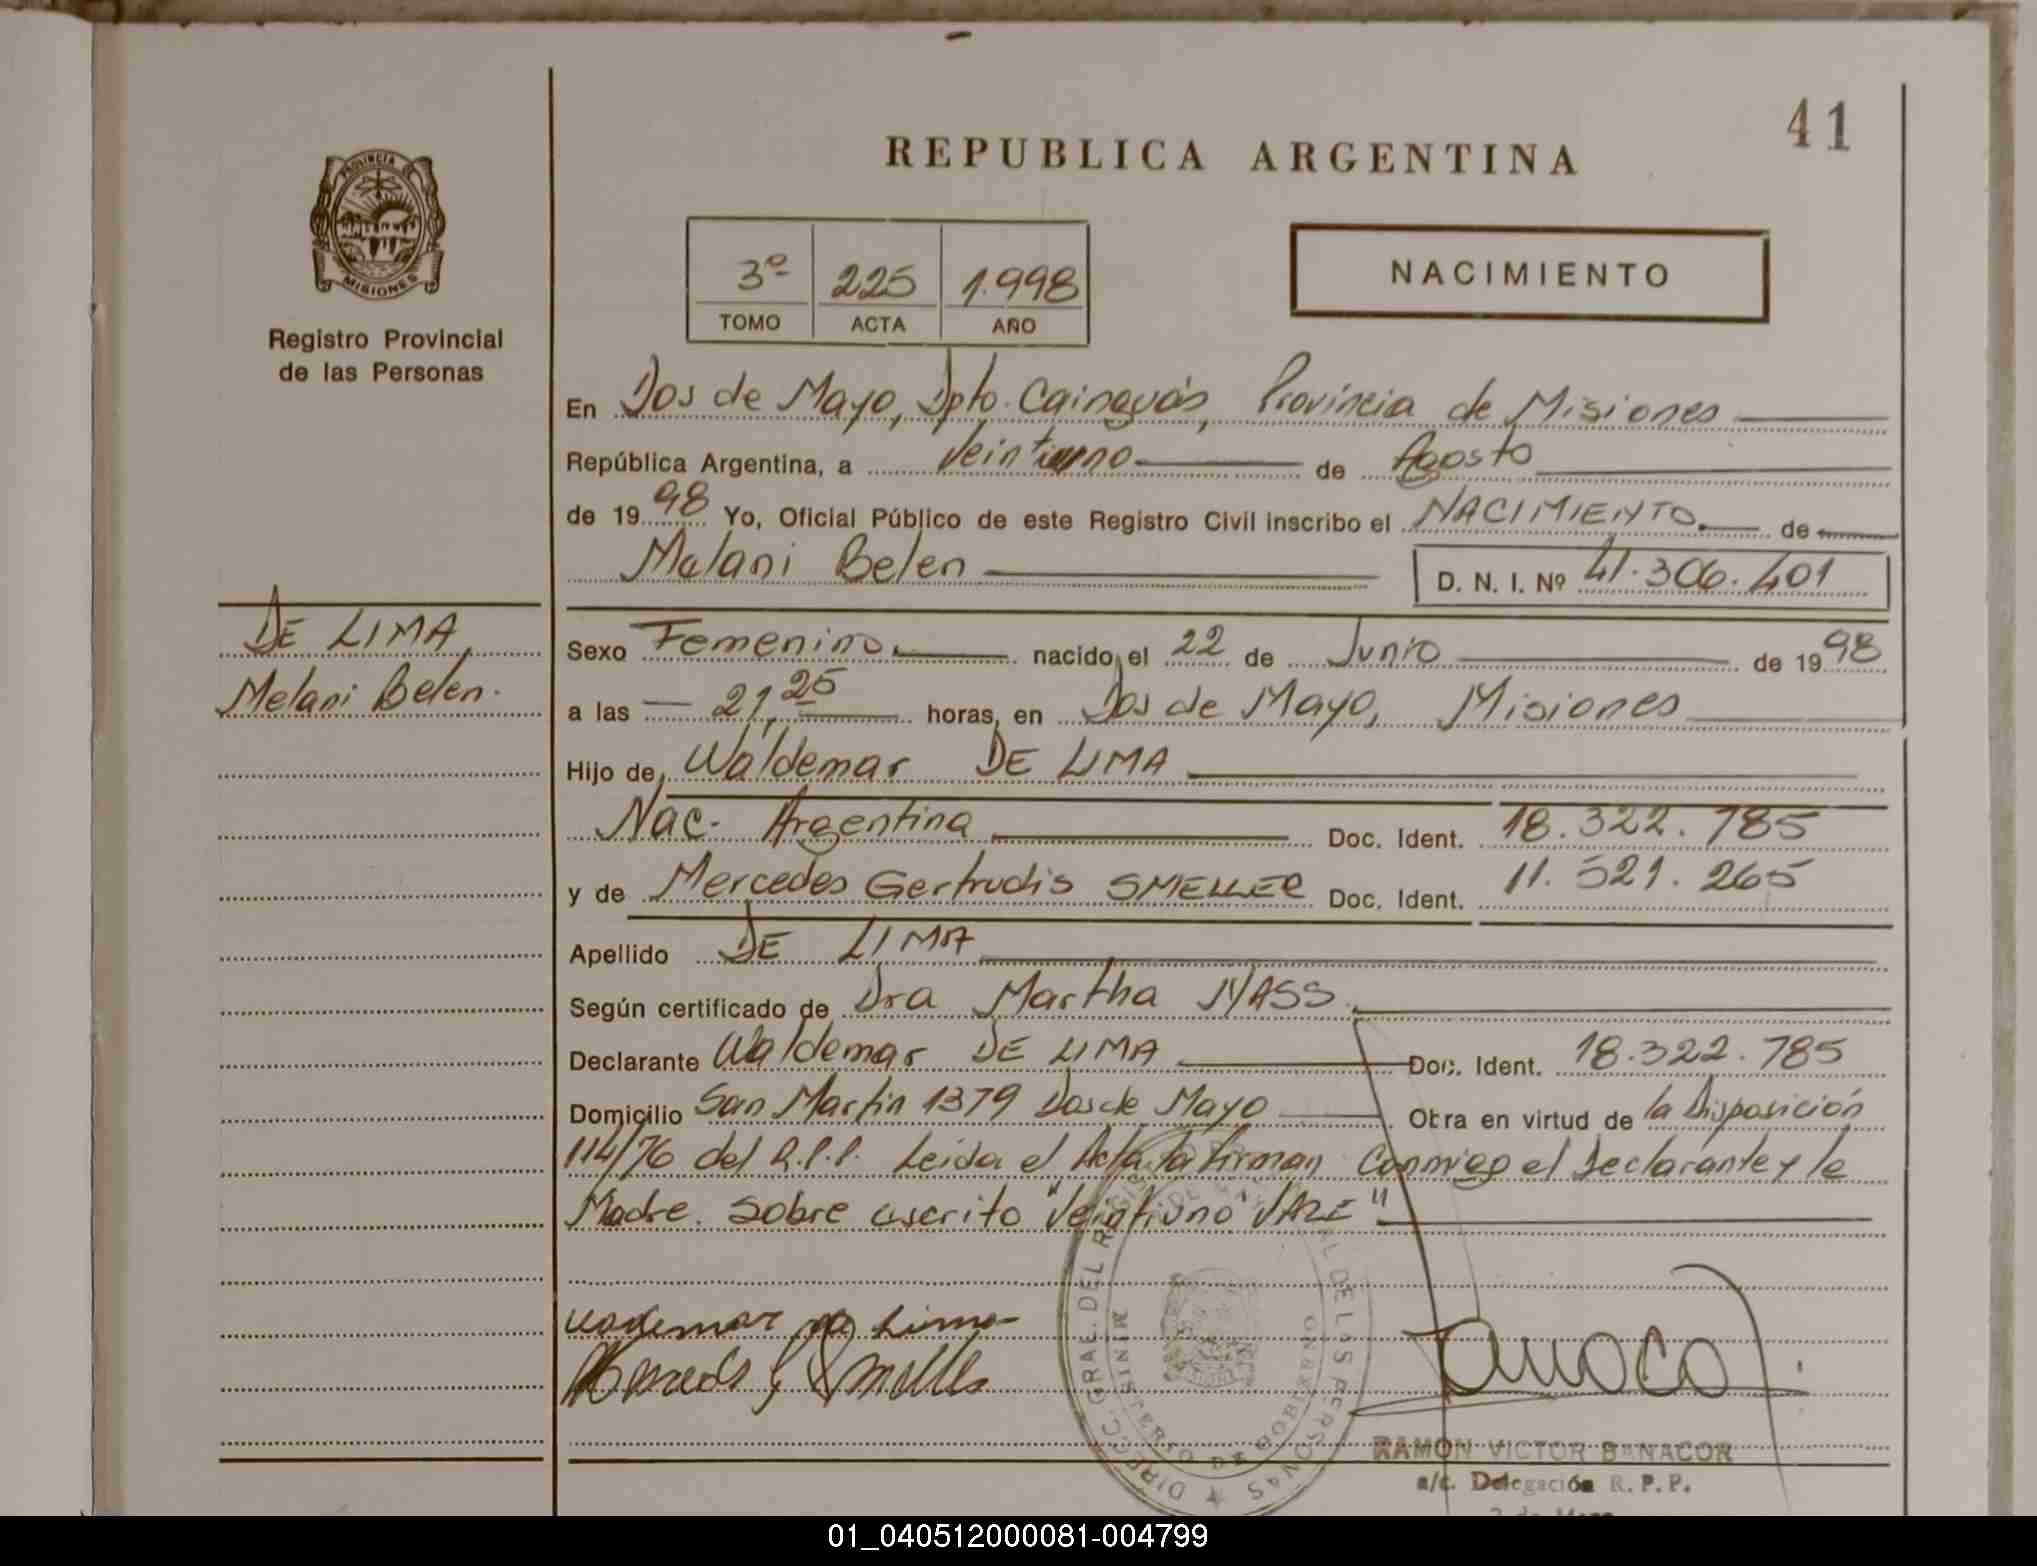 41
REPUBLICA ARGENTINA
PROVINCIA DE
MISIONES
Registro Provincial
de las Personas
3º 225 1.998
TOMO ACTA AÑO
NACIMIENTO
En Dos de Mayo, Dpto. Cainguás, Provincia de Misiones
República Argentina, a Veintiuno de Agosto
de 19 98 Yo, Oficial Público de este Registro Civil inscribo el NACIMIENTO de
Melani Belen D. N. I. Nº 41.306.401
DE LIMA
Melani Belen.
Sexo Femenino nacido el 22 de Junio de 19 98
a las 21,25 horas, en Dos de Mayo, Misiones
Hijo de Waldemar DE LIMA
Nac. Argentina Doc. Ident. 18.322.785
y de Mercedes Gertrudis SMELLER Doc. Ident. 11.521.265
Apellido DE LIMA
Según certificado de Dra Martha NASS
Declarante Waldemar DE LIMA Doc. Ident. 18.322.785
Domicilio San Martin 1379 Dos de Mayo Obra en virtud de la Disposición
114/76 del R.P.P. Leida el Acta la firman conmigo el Declarante y la
Madre. Sobre escrito "Veintiuno" VALE"
DIRECC. GRAL. DEL REGISTRO DE LAS PERSONAS
MINISTERIO DE GOBIERNO
RAMON VICTOR BANACOR
a/c. Delegación R. P. P.
2 de Mayo
01_040512000081-004799